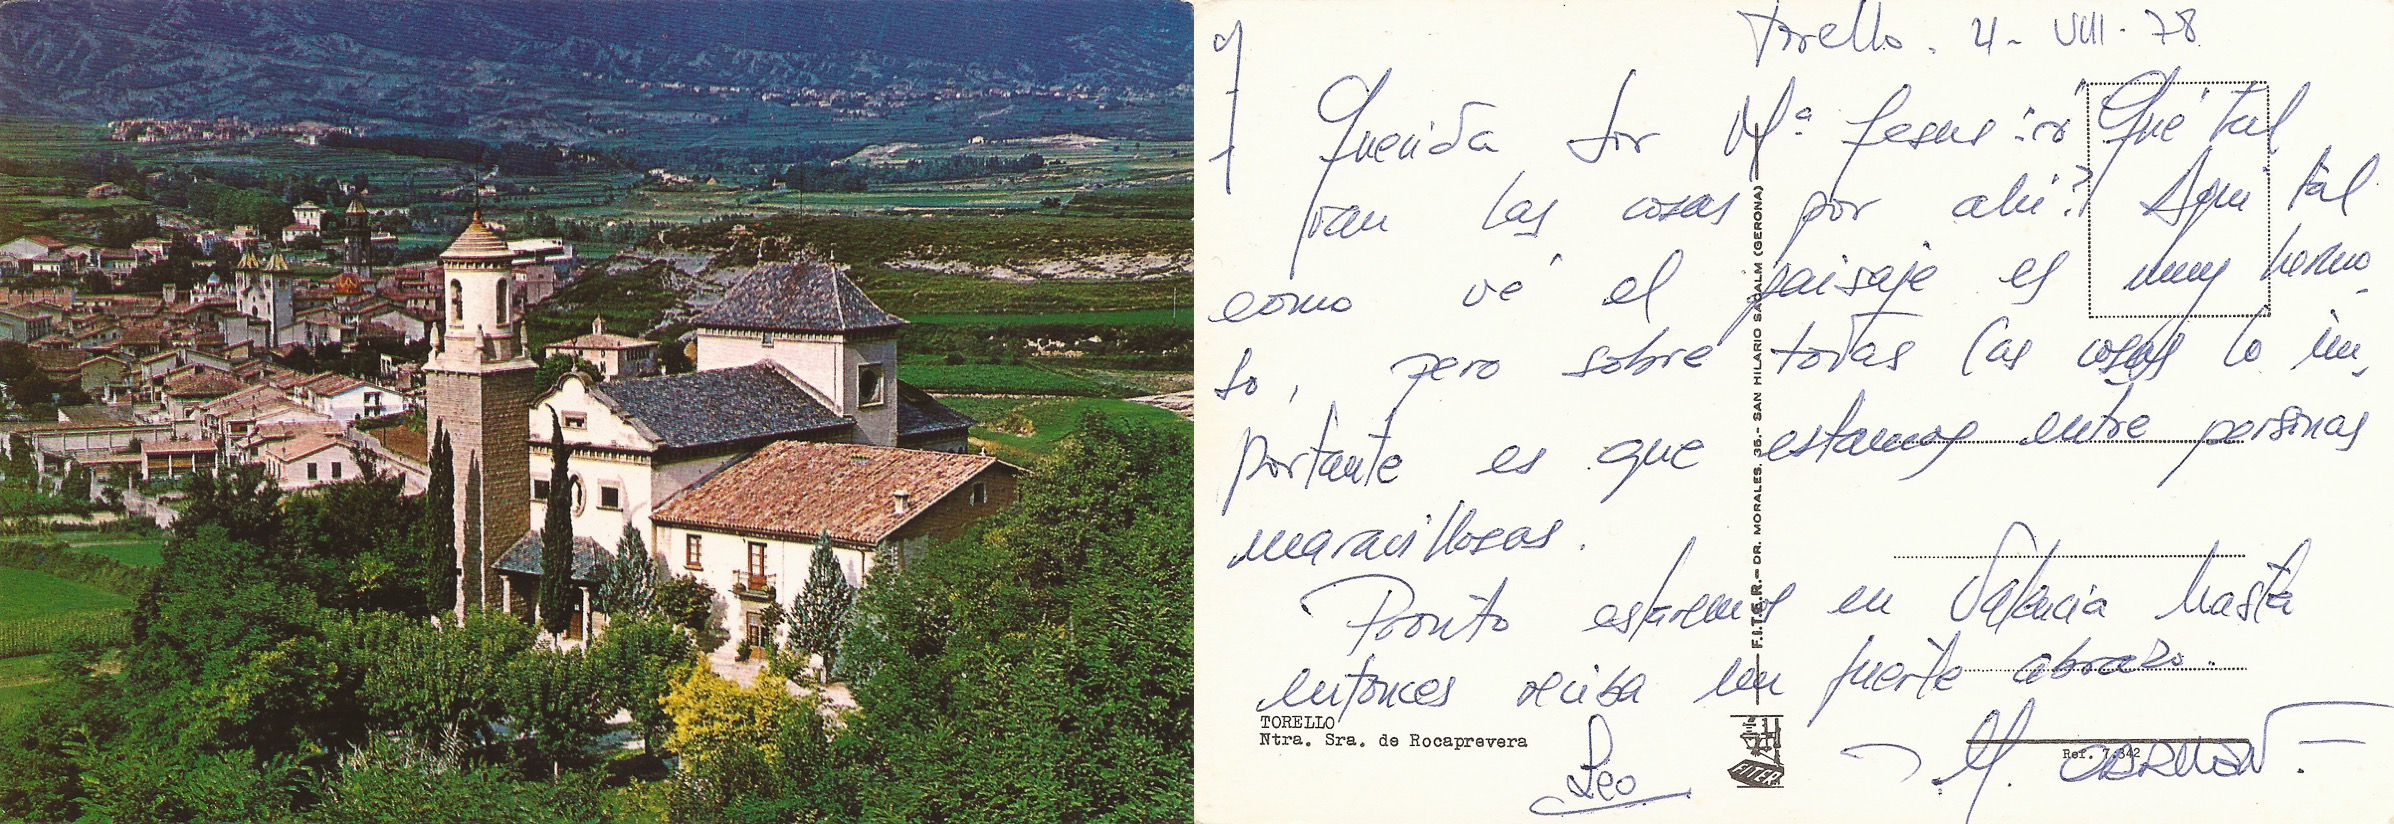 Torello. 4 - VIII - 78
Querida Sor Mª Jesus: ¿Qué tal
van las cosas por ahí? Aqui tal
como vé el paisaje es muy hermo-
so, pero sobre todas las cosas lo im-
portante es que estamos entre personas
maravillosas.
Pronto estaremos en Valencia hasta
entonces reciba un fuerte abrazo.
TORELLO
Ntra. Sra. de Rocaprevera
Leo
M.
Ref. 7.342
F.I.T.E.R. - DR. MORALES, 35 - SAN HILARIO SACALM (GERONA)
FITER